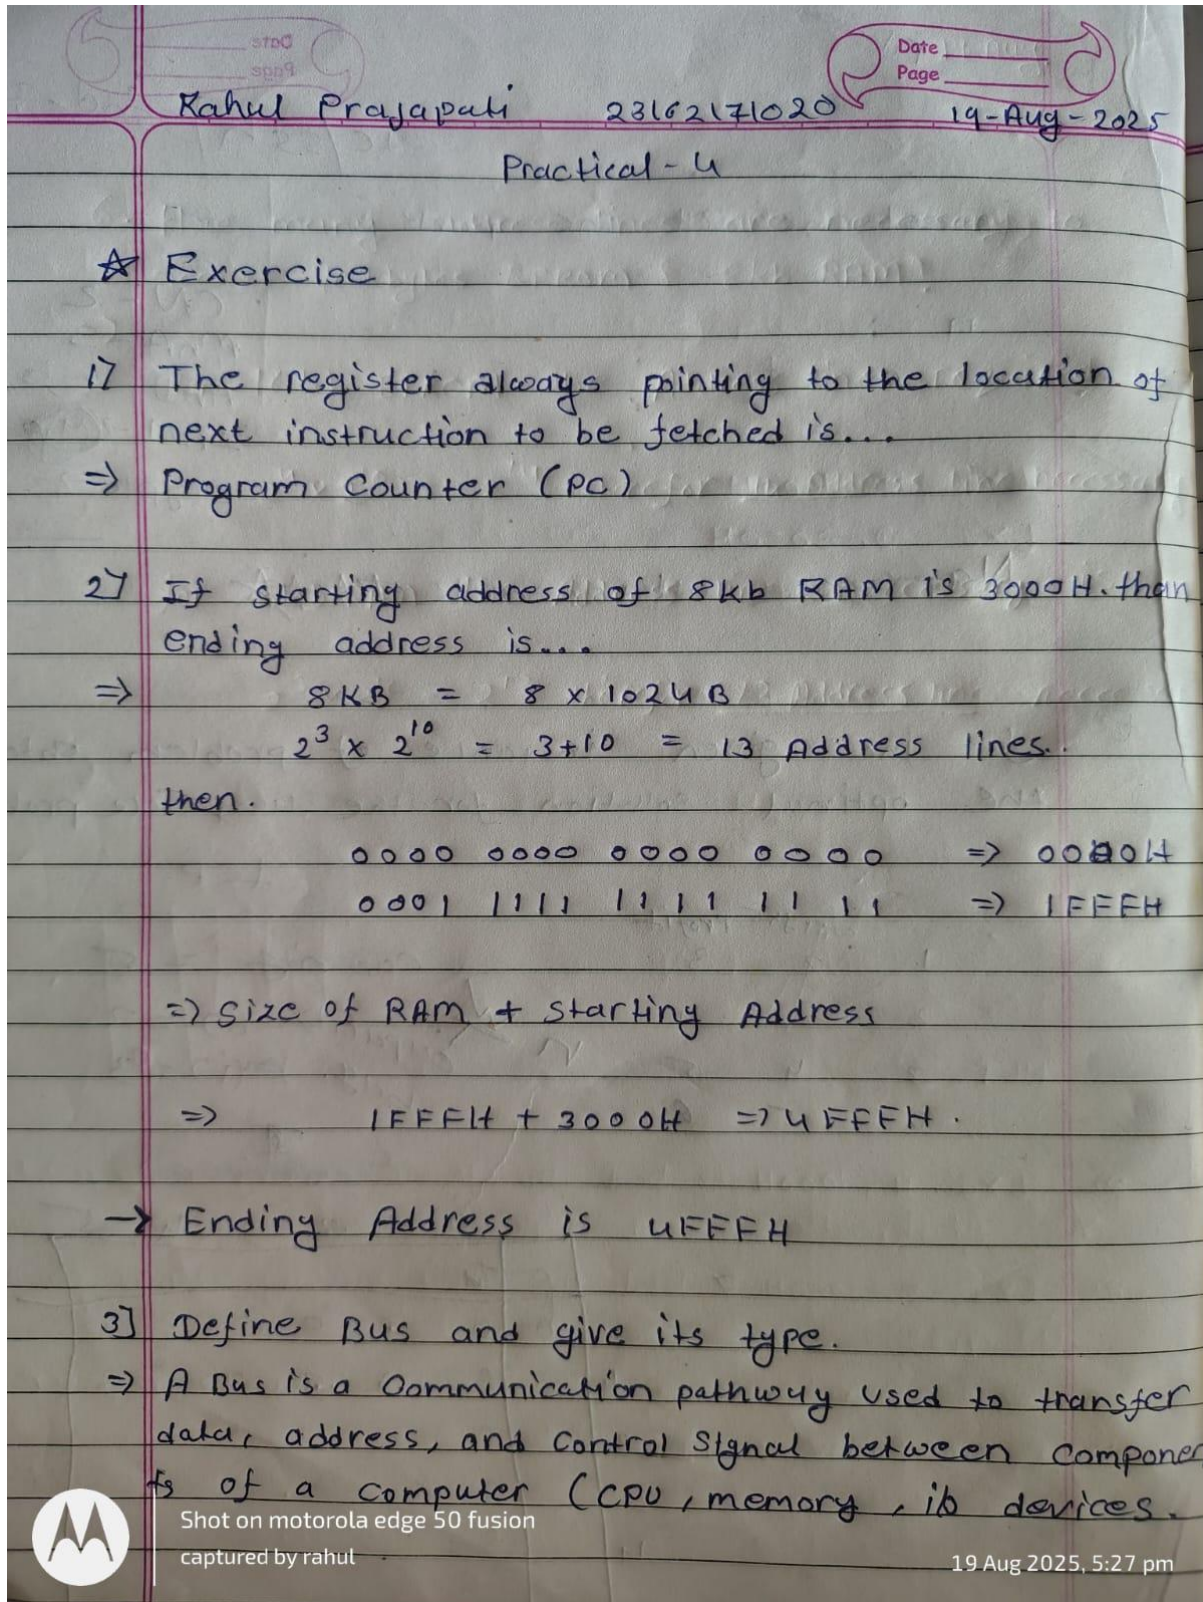 Date
Page
Rahul Prajapati 23162171020 19-Aug-2025
Practical-4
☆ Exercise
1] The register always pointing to the location of
next instruction to be fetched is...
⇒ Program Counter (PC)
2] If starting address of 8kb RAM is 3000H. than
ending address is...
⇒ 8KB = 8 x 1024B
2³ x 2¹⁰ = 3+10 = 13 Address lines.
then.
0000 0000 0000 0000 ⇒ 0000H
0001 1111 1111 1111 ⇒ 1FFFH
⇒ Size of RAM + Starting Address
⇒ 1FFFH + 3000H ⇒ 4FFFH.
→ Ending Address is 4FFFH
3] Define Bus and give its type.
⇒ A Bus is a Communication pathway used to transfer
data, address, and control signal between componen
ts of a computer (CPU, memory, io devices.
Shot on motorola edge 50 fusion
captured by rahul
19 Aug 2025, 5:27 pm